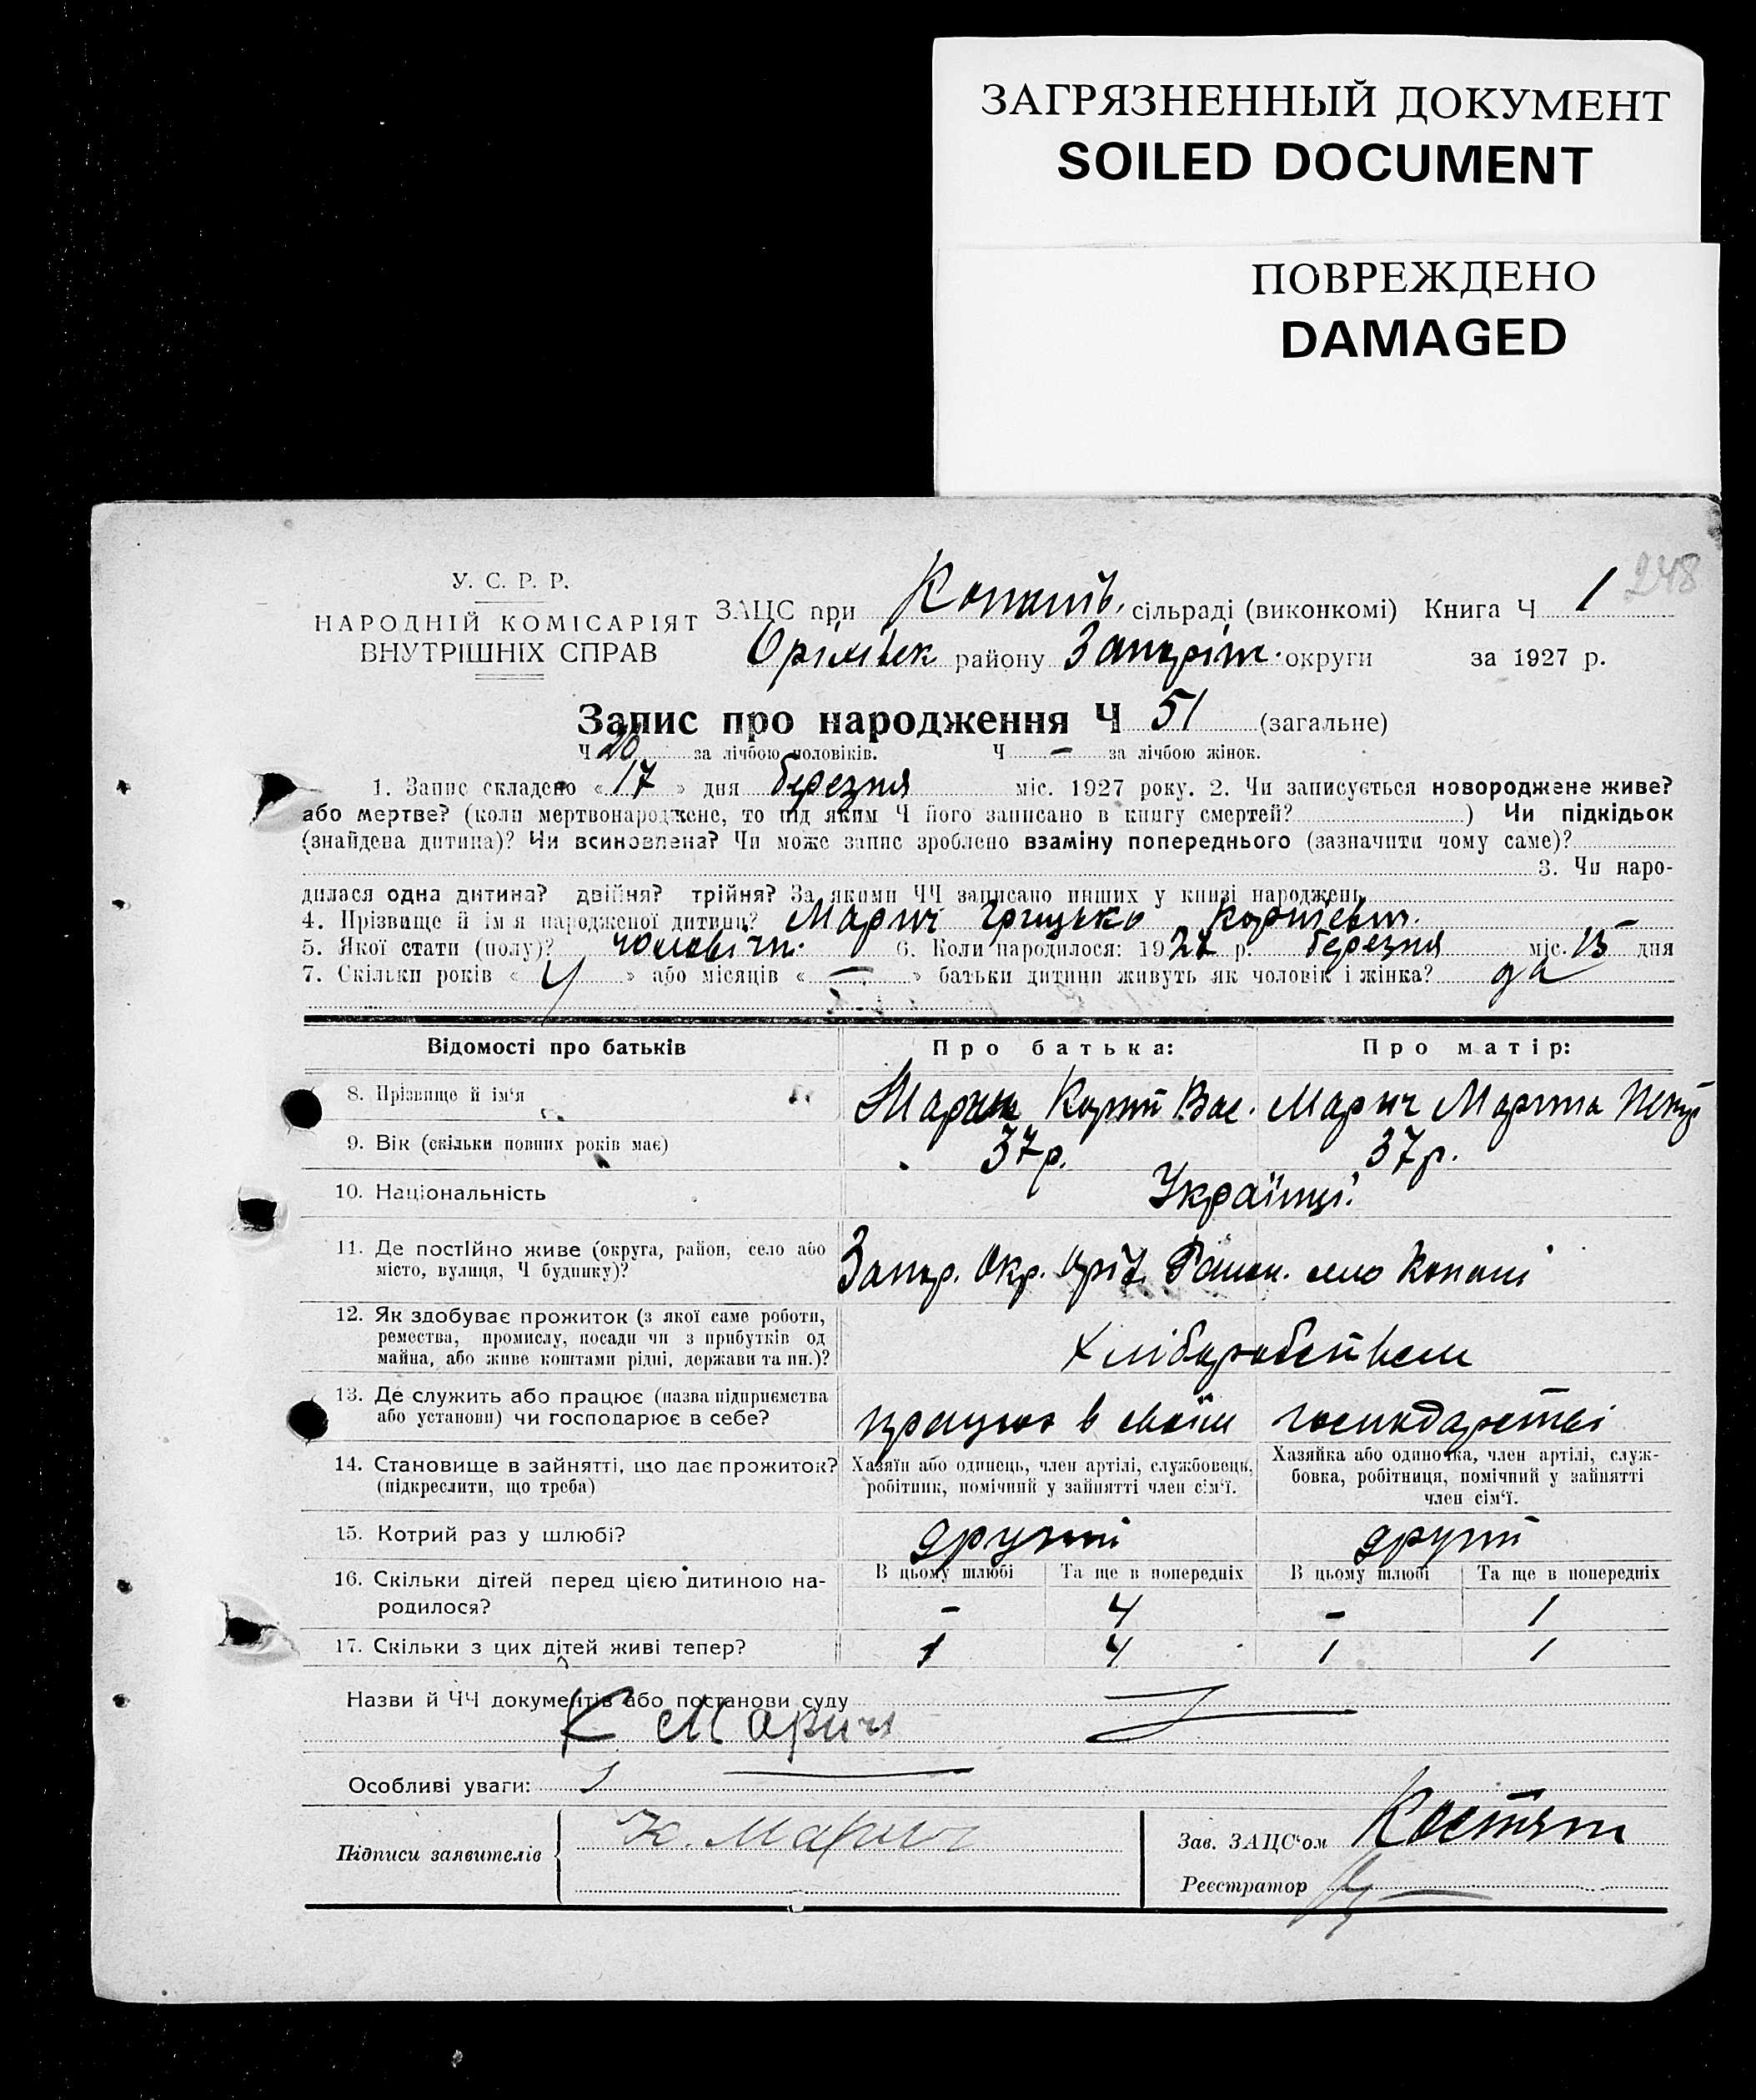 ЗАГРЯЗНЕННЫЙ ДОКУМЕНТ
SOILED DOCUMENT
ПОВРЕЖДЕНО
DAMAGED
248
У. С. Р. Р.
НАРОДНІЙ КОМІСАРІЯТ
ВНУТРІШНІХ СПРАВ
ЗАЦС при сільраді (виконкомі) Книга Ч 1
району округи за 1927 р.
Запис про народження Ч 51 (загальне)
Ч 26 за лічбою чоловіків. Ч — за лічбою жінок.
1. Запис складено « 17 » дня березня міс. 1927 року. 2. Чи записується новороджене живе?
або мертве? (коли мертвонароджене, то під яким Ч його записано в книгу смертей? ) Чи підкідьок
(знайдена дитина)? Чи всиновлена? Чи може запис зроблено взаміну попереднього (зазначити чому саме)?
3. Чи наро-
дилася одна дитина? двійня? трійня? За якими ЧЧ записано инших у книзі народжень
4. Прізвище й ім'я народженої дитини? Марич Грицько
5. Якої стати (полу)? чоловіч. 6. Коли народилося: 1927 р. березня міс. 15 дня
7. Скільки років « » або місяців « — » батьки дитини живуть як чоловік і жінка? да
Відомості про батьків
Про батька:
Про матір:
8. Прізвище й ім'я
Марич Вас.
Марич
9. Вік (скільки повних років має)
37р.
37р.
10. Національність
Українці
11. Де постійно живе (округа, район, село або
місто, вулиця, Ч будинку)?
Запор. Окр. Оріх. Район. село Копані
12. Як здобуває прожиток (з якої саме роботи,
ремества, промислу, посади чи з прибутків од
майна, або живе коштами рідні, держави та ин.)?
хліборобством
13. Де служить або працює (назва підприємства
або установи) чи господарює в себе?
працює в своїм господарстві
14. Становище в зайнятті, що дає прожиток?
(підкреслити, що треба)
Хазяїн або одинець, член артілі, службовець,
робітник, помічний у зайнятті член сім'ї.
Хазяйка або одиночка, член артілі, служ-
бовка, робітниця, помічний у зайнятті
член сім'ї.
15. Котрий раз у шлюбі?
другий
другий
16. Скільки дітей перед цією дитиною на-
родилося?
В цьому шлюбі Та ще в попередніх В цьому шлюбі Та ще в попередніх
– 4 – 1
17. Скільки з цих дітей живі тепер?
1 4 1 1
Назви й ЧЧ документів або постанови суду
К Марич
Особливі уваги:
Підписи заявителів
К. Марич
Зав. ЗАЦС'ом
Реєстратор